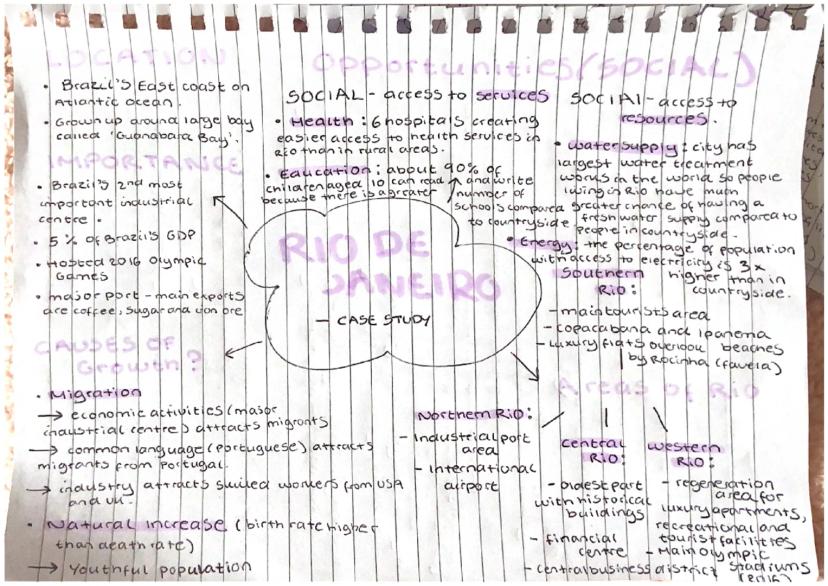 LOCATION
• Brazil's East coast on
Atlantic ocean.
• Grown up around large bay
called 'Guanabara Bay'.
IMPORTANCE
• Brazil's 2nd most
important industrial
centre.
• 5% of Brazil's GDP
• Hosted 2016 Olympic
Games
• major port - main exports
are coffee, sugar and iron ore
CAUSES OF
Growth?
• Migration
→ economic activities (major
industrial centre) attracts migrants
→ common language (portuguese) attracts
migrants from Portugal.
→ industry attracts skilled workers from USA
and UK.
• Natural increase (birth rate higher
than death rate)
→ Youthful population
Opportunities (SOCIAL)
SOCIAL - access to services
• Health: 6 hospitals creating
easier access to health services in
Rio than in rural areas.
• Education: about 90% of
children aged 10 can read and write
because there is a greater number of
schools compared
to countryside
SOCIAL - access to
resources.
• water supply: city has
largest water treatment
works in the world so people
living in Rio have much
greater chance of having a
fresh water supply compared to
people in countryside.
• Energy: the percentage of population
with access to electricity is 3x
higher than in
countryside.
RIO DE
JANEIRO
- CASE STUDY
Areas of Rio
Southern
Rio:
- main tourists area
- copacabana and Ipanema
- luxury flats overlook beaches
by Rocinha (favela)
Northern Rio:
- Industrial port
area
- international
airport
central
Rio:
- oldest part
with historical
buildings
- financial
centre
- central business district
western
Rio:
- regeneration
area for
luxury apartments,
recreational and
tourist facilities
- Main Olympic
stadiums
(2016)